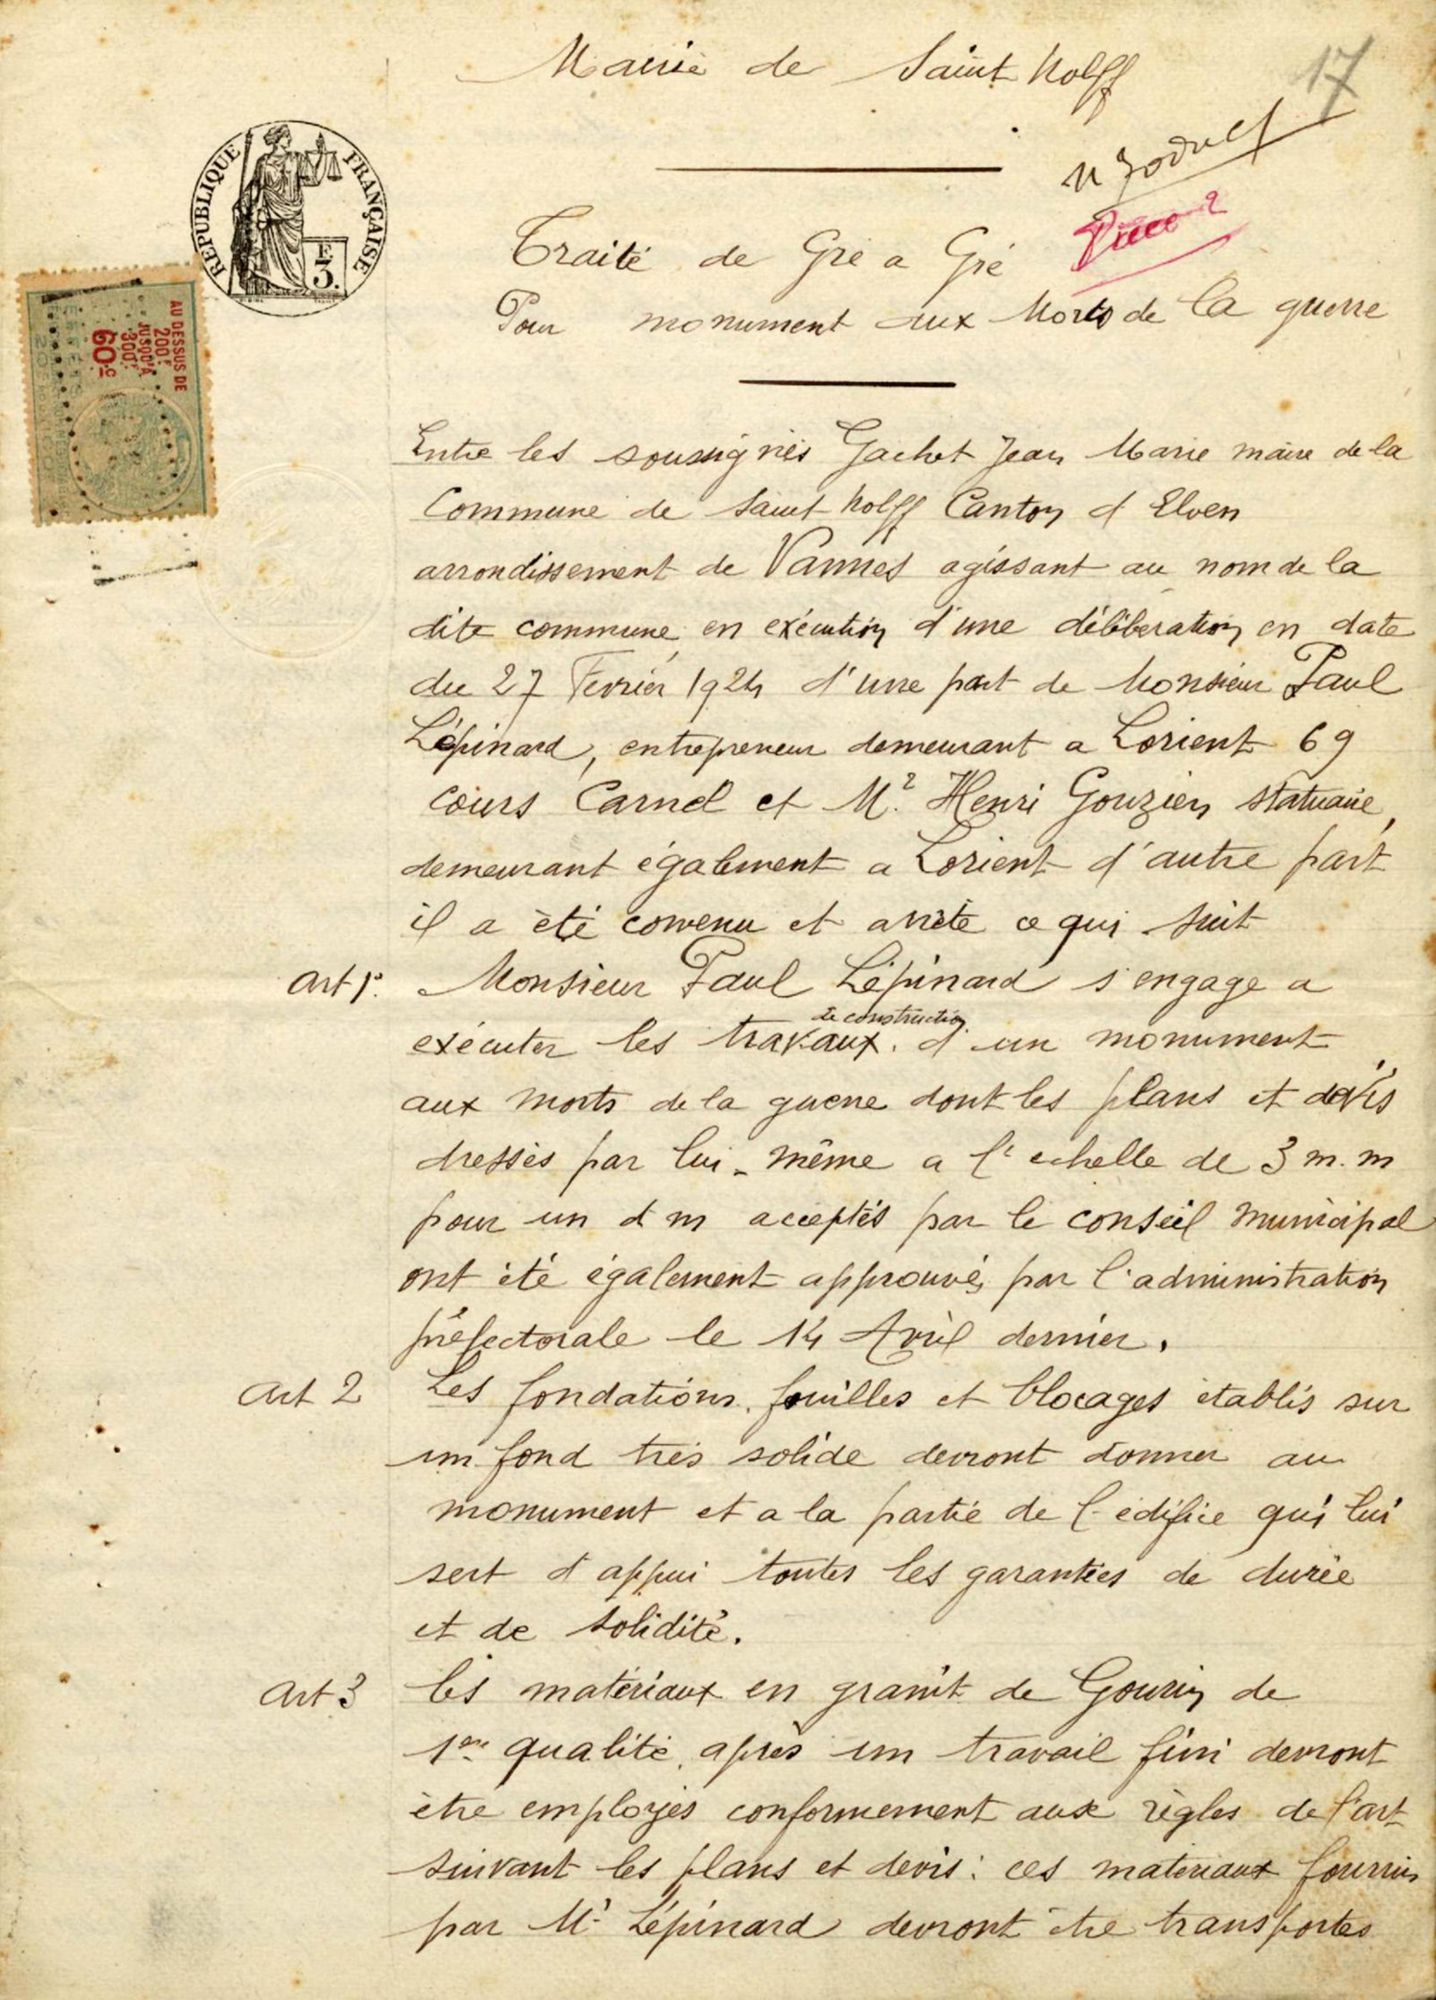 Mairie de Saint Nolff
17
Pièce 2
RÉPUBLIQUE FRANÇAISE
F
3.
Traité de Gré a Gré
Pour monument aux Morts de la guerre
AU DESSUS DE
200 F
JUSQU'A
300 F
60 c
Entre les soussignés Gachet Jean Marie maire de la
Commune de Saint Nolff Canton d Elven
arrondissement de Vannes agissant au nom de la
dite commune en exécution d'une délibération en date
du 27 Fevrier 1924 d'une part de Monsieur Paul
Lépinard, entrepreneur demeurant a Lorient 69
Cours Carnel et Mr Henri Gouzien statuaire,
demeurant également a Lorient d'autre part
il a été convenu et arrèté ce qui suit
Art 1º. Monsieur Paul Lépinard s'engage a
de construction
exécuter les travaux d'un monument
aux morts de la guerre dont les plans et devis
dressés par lui-même a l'echelle de 3 m.m
pour un d m acceptés par le conseil municipal
ont été également approuvés par l'administration
préfectorale le 14 Avril dernier.
Art 2 Les fondations, fouilles et blocages établis sur
un fond très solide devront donner au
monument et a la partie de l'édifice qui lui
sert d'appui toutes les garanties de durée
et de solidité.
Art 3 les matériaux en granit de Gourin de
1ere qualité, après un travail fini devront
être employés conformement aux règles de l'art
suivant les plans et devis: ces materiaux fournis
par Mr Lépinard devront être transportés